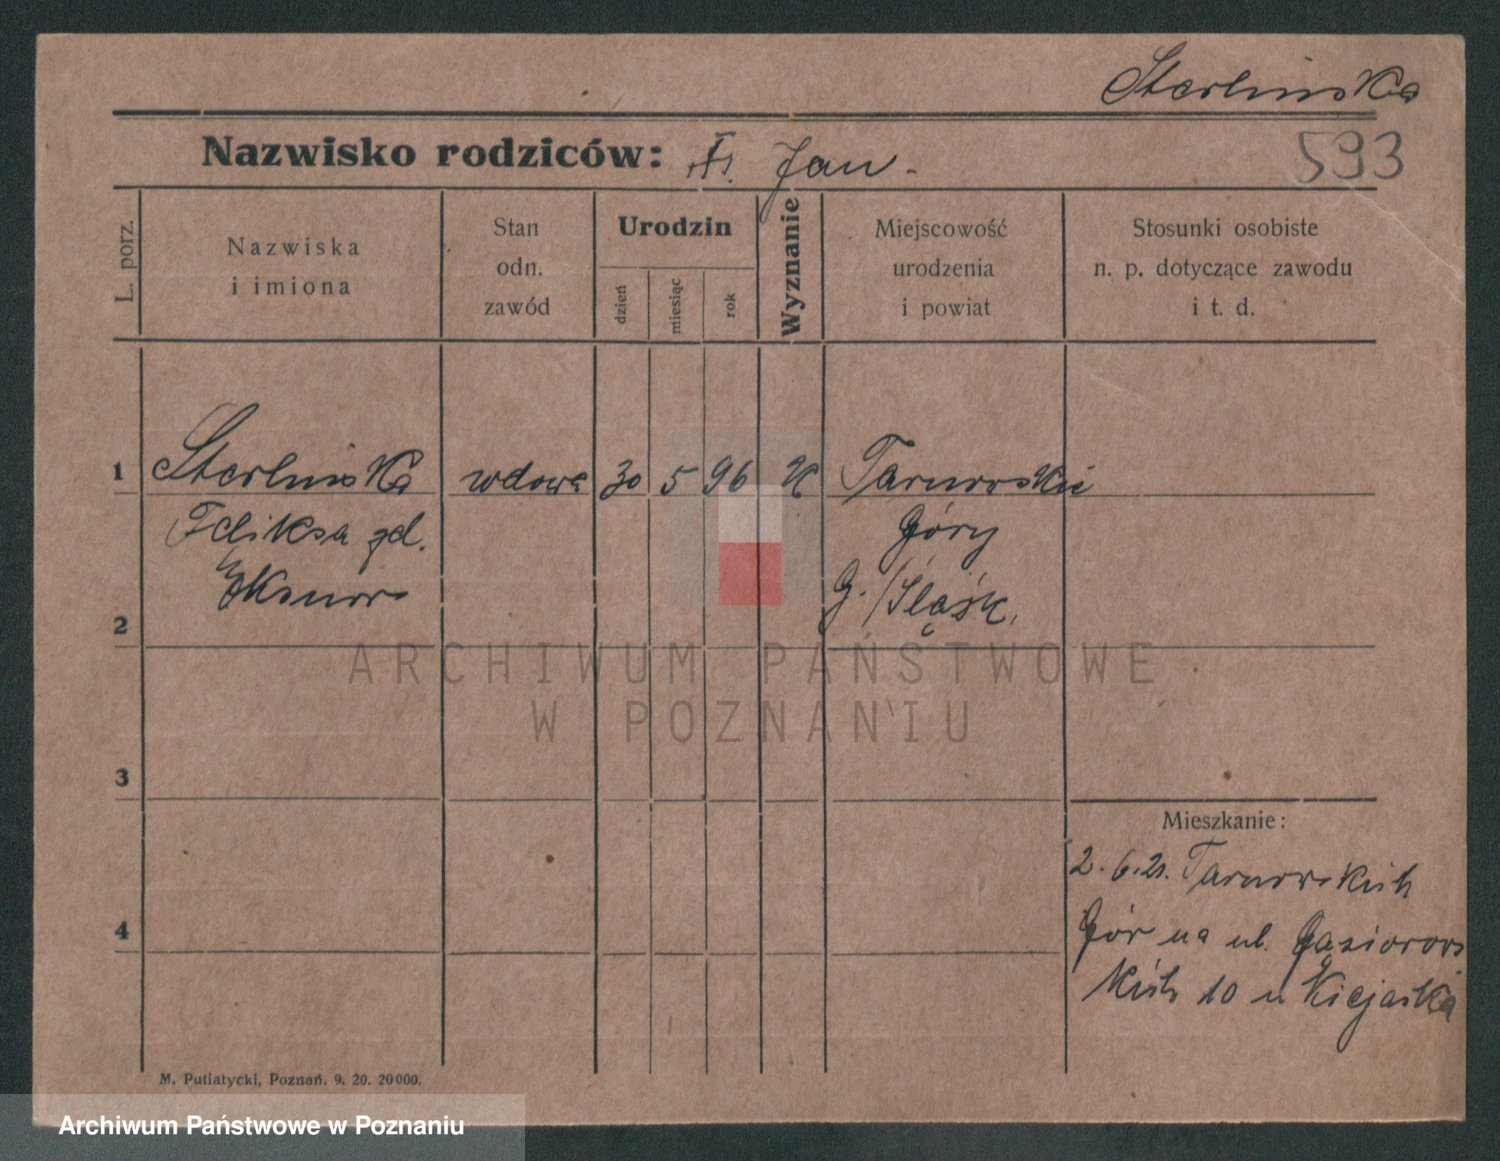 Sterlinska
593
Nazwisko rodziców: Jan.
L. porz.
Nazwiska
i imiona
Stan
odn.
zawód
Urodzin
dzień
miesiąc
rok
Wyznanie
Miejscowość
urodzenia
i powiat
Stosunki osobiste
n. p. dotyczące zawodu
i t. d.
1 Sterlinska wdowa 30 5 96 K Tarnowskie
Feliksa zd. Góry
G./Śląsk.
2
ARCHIWUM PAŃSTWOWE
W POZNANIU
3
Mieszkanie:
2.6.21. Tarnowskich
4
Gór na ul. Gąsiorows
kich 10 u
M. Putiatycki, Poznań. 9. 20. 20000.
Archiwum Państwowe w Poznaniu